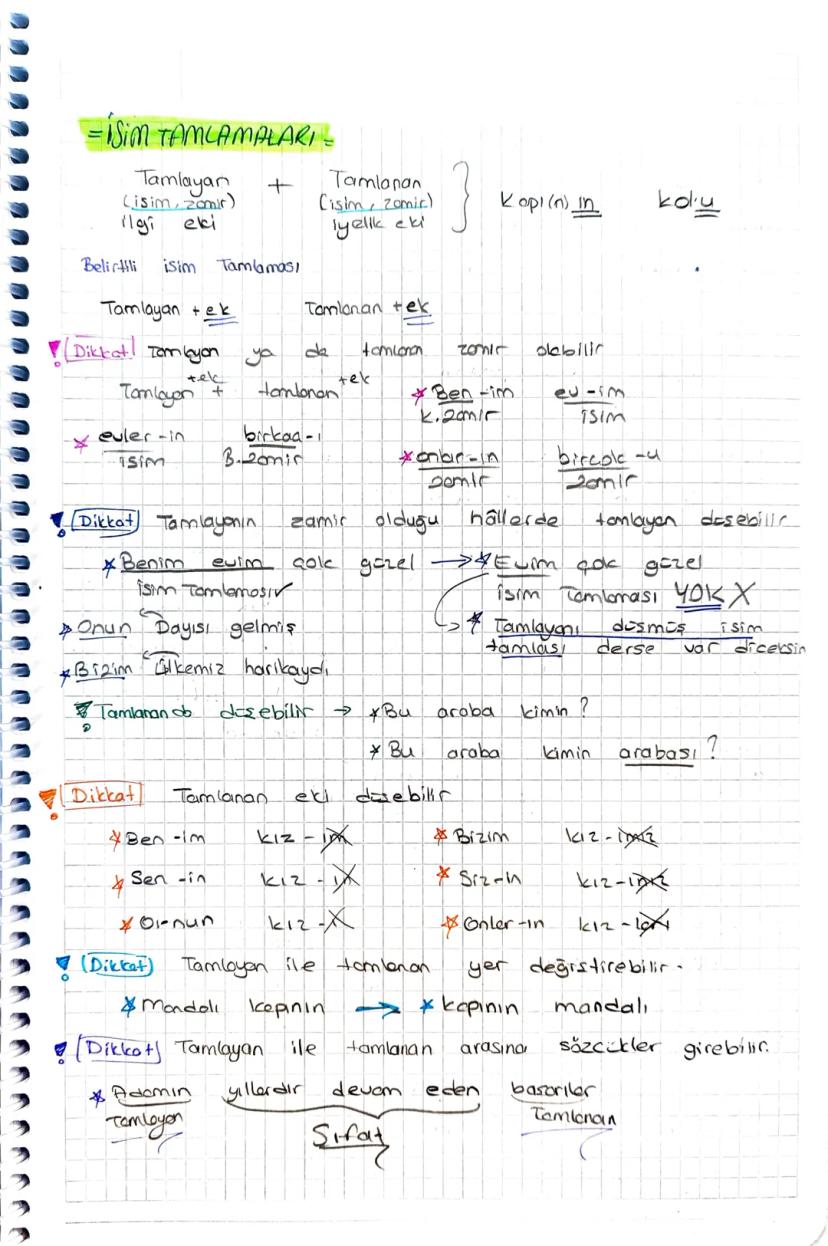 = İSİM TAMLAMALARI =
Tamlayan + Tamlanan
(isim, zamir) (isim, zamir) Kapı(n) ın kol-u
ilgi eki iyelik eki
Belirtili isim Tamlaması
Tamlayan + ek Tamlanan + ek
! Dikkat! Tamlayan ya da tamlanan zamir olabilir
Tamlayan +ek + tamlanan +ek * Ben -im ev -im
K. zamir isim
* evler -in birkaç-ı
isim B. zamir
* onlar-ın birçok -u
zamir zamir
! Dikkat Tamlayanın zamir olduğu hâllerde tamlayan düşebilir
* Benim evim çok güzel → * Evim çok güzel
isim Tamlaması ✓ isim Tamlaması YOK X
* Onun Dayısı gelmiş * Tamlayanı düşmüş isim
tamlası derse var diceksin
* Bizim ülkemiz harikaydı
! Tamlanan da düşebilir → * Bu araba kimin ?
* Bu araba kimin arabası ?
! Dikkat Tamlanan eki düşebilir
* Ben -im kız - im * Bizim kız - imiz
* Sen -in kız - in * Siz-in kız-iniz
* O-nun kız -ı * Onlar-ın kız -ları
! (Dikkat) Tamlayan ile tamlanan yer değiştirebilir.
* Mandalı kapının → * kapının mandalı
! (Dikkat) Tamlayan ile tamlanan arasına sözcükler girebilir.
* Adamın yıllardır devam eden başarılar
Tamlayan Tamlanan
Sıfat